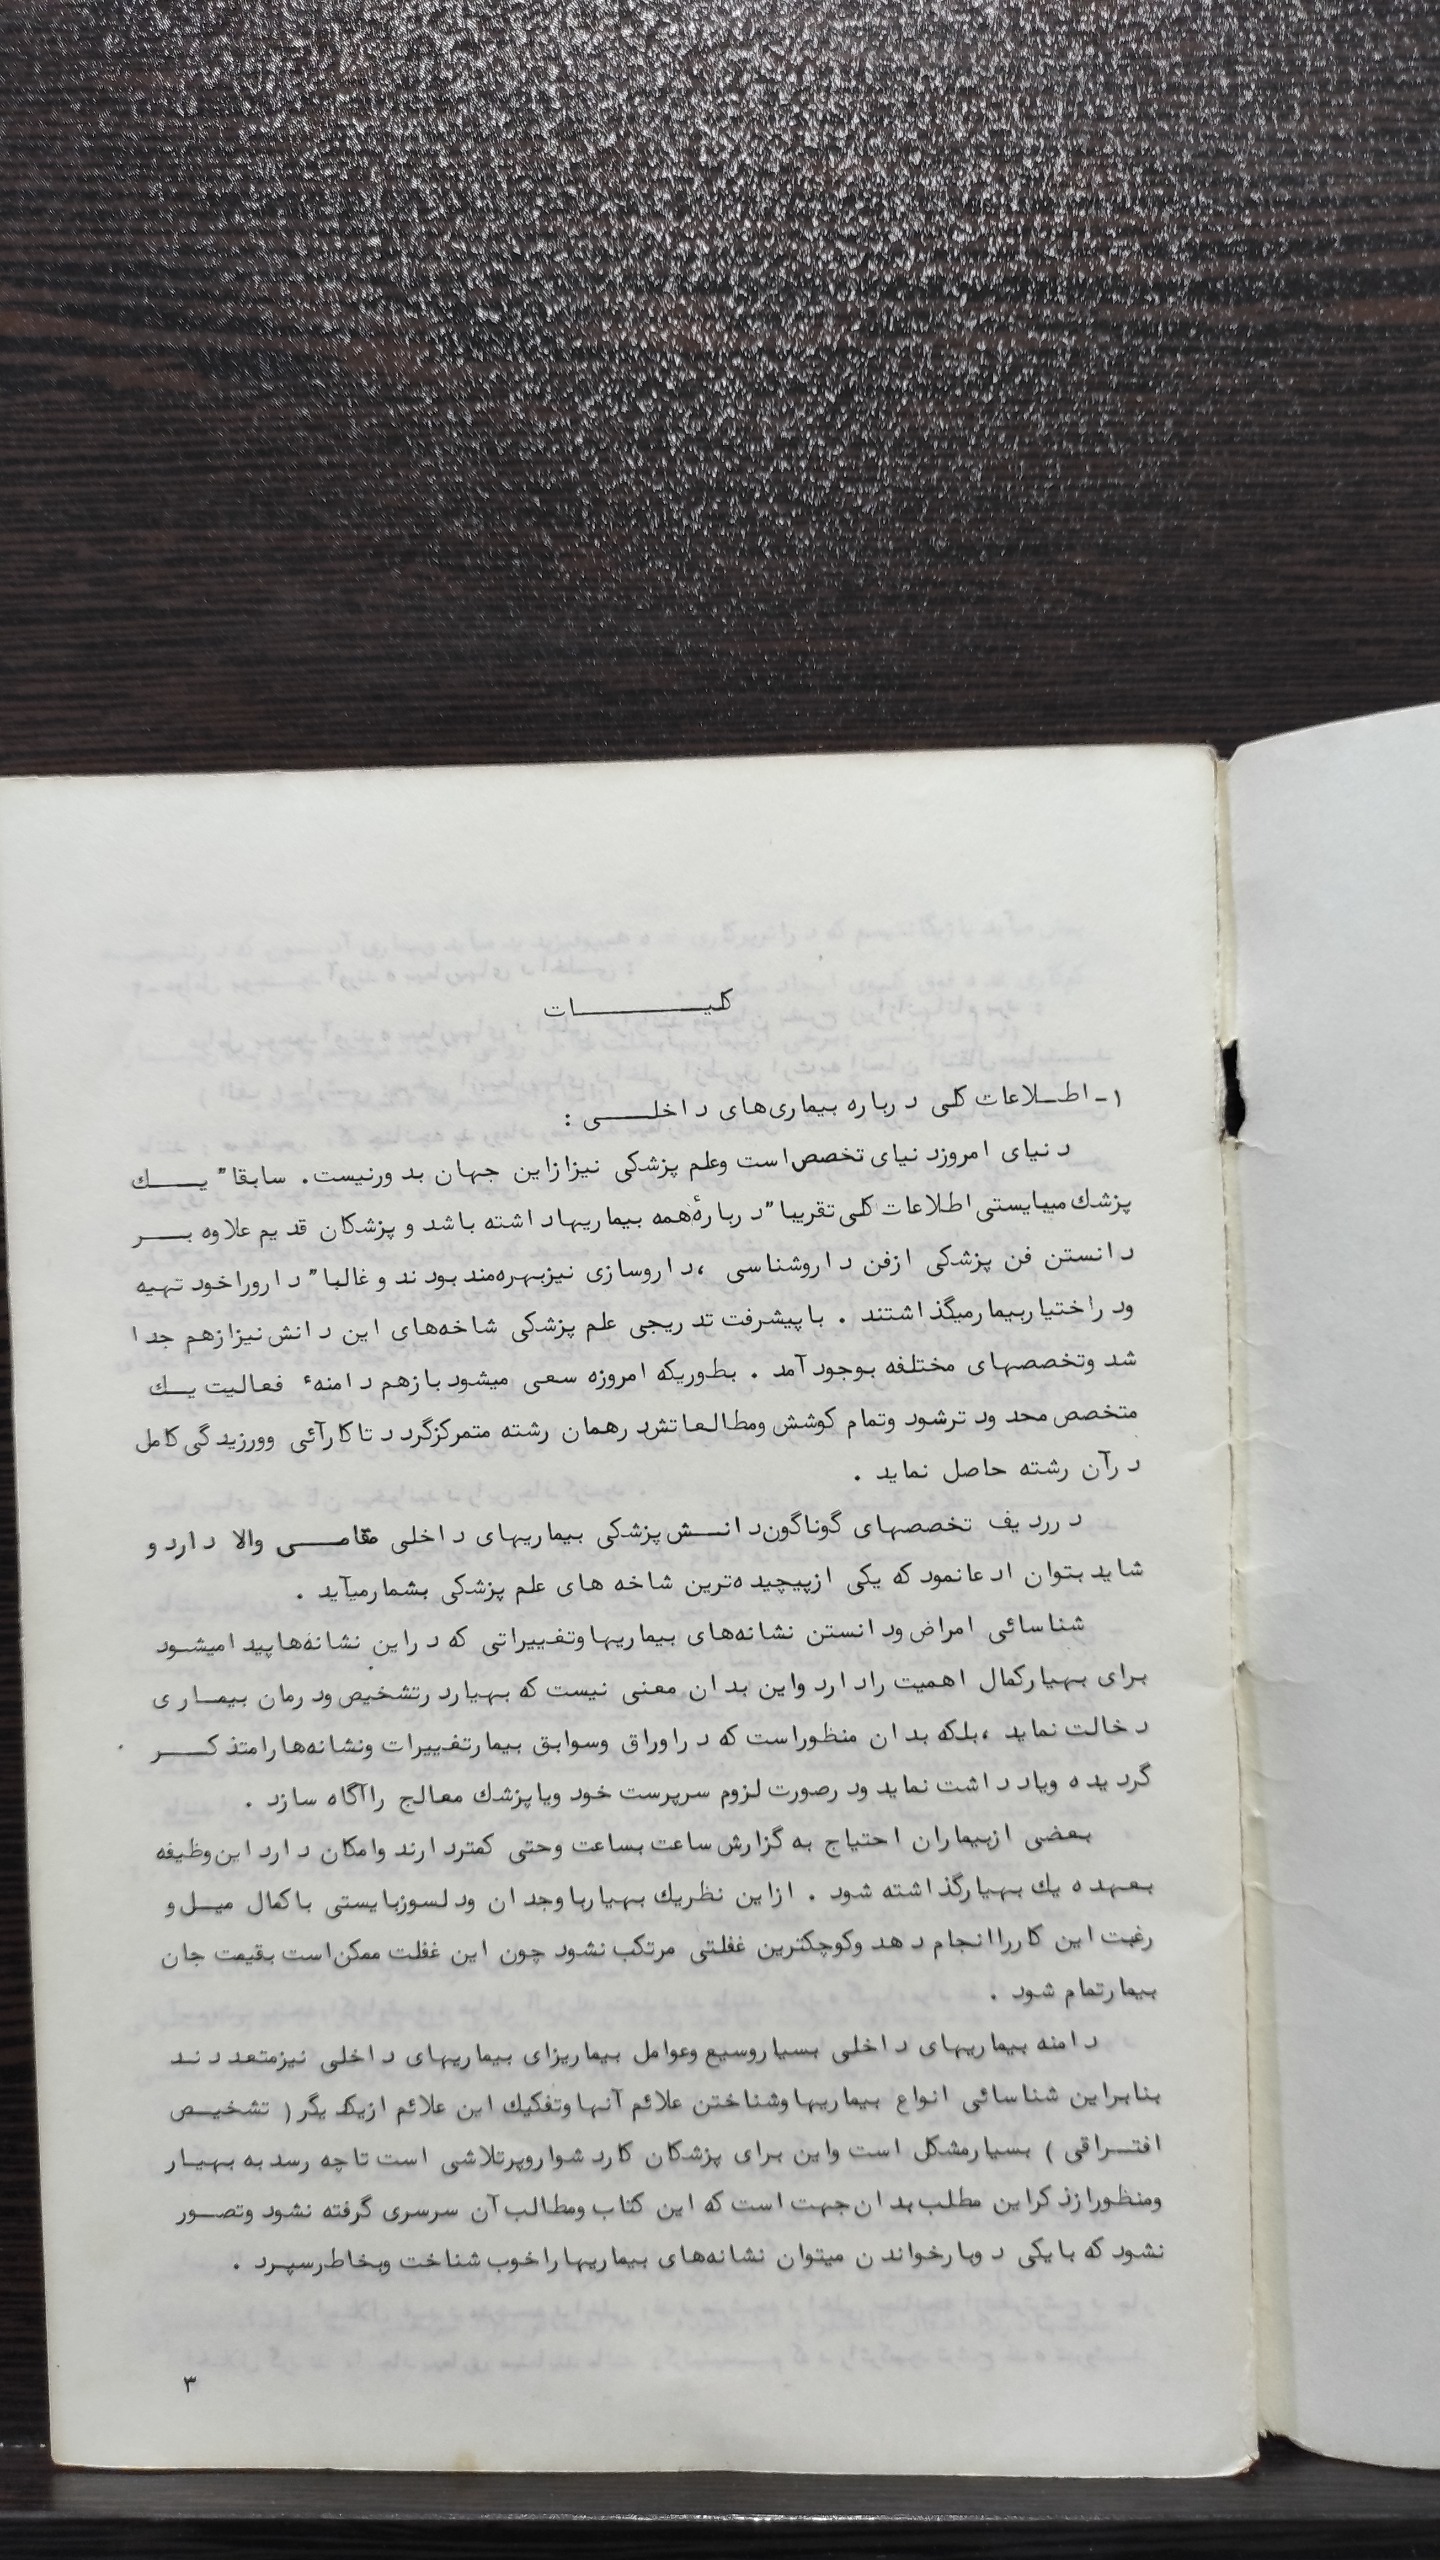 کلیـــــــات
۱ـ اطـلاعات کلی درباره بیماری‌های داخلـــی :
دنیای امروزدنیای تخصص‌است وعلم پزشکی نیزازاین جهان بدورنیست. سابقا" یـــك
پزشك میبایستی اطلاعات کلی‌تقریبا"دربارهٔ‌همه بیماریهاداشته باشد و پزشکان قدیم علاوه بـــر
دانستن فن پزشکی ازفن داروشناسی ،داروسازی نیزبهره‌مندبودند و غالبا" داروراخود تهیه
ودراختیاربیمارمیگذاشتند . باپیشرفت تدریجی علم پزشکی شاخه‌های این دانش‌نیزازهم جدا
شد وتخصصهای مختلفه بوجودآمد . بطوریکه امروزه سعی میشودبازهم دامنهٔ فعالیت یــك
متخصص محدودترشود وتمام کوشش ومطالعاتش‌درهمان رشته متمرکزگردد تاکارآئی وورزیدگی‌کامل
درآن رشته حاصل نماید .
درردیف تخصصهای گوناگون‌دانــش‌پزشکی بیماریهای داخلی مقامـــی والا داردو
شایدبتوان ادعانمودکه یکی ازپیچیده‌ترین شاخه های علم پزشکی بشمارمیآید .
شناسائی امراض‌ودانستن نشانه‌های بیماریهاوتغییراتی که دراین نشانه‌هاپیدامیشـود
برای بهیارکمال اهمیت رادارد واین بدان معنی نیست که بهیاردرتشخیص‌ودرمان بیمـاری
دخالت نماید ،بلکه بدان منظوراست که دراوراق وسوابق بیمارتغییرات ونشانه‌هارامتذکـــر
گردیده ویادداشت نماید ودرصورت لزوم سرپرست خود ویاپزشك معالج راآگاه سازد .
بعضی ازبیماران احتیاج به گزارش‌ساعت بساعت وحتی کمتردارند وامکان دارداین‌وظیفه
بعهده یك بهیارگذاشته شود . ازاین نظریك بهیارباوجدان ودلسوزبایستی باکمال میـل‌و
رغبت این کارراانجام دهد وکوچکترین غفلتی مرتکب نشود چون این غفلت ممکن‌است بقیمت جان
بیمارتمام شود .
دامنه بیماریهای داخلی بسیاروسیع وعوامل بیماریزای بیماریهای داخلی نیزمتعددنـد
بنابراین شناسائی انواع بیماریهاوشناختن علائم آنهاوتفکیك این علائم ازیکدیگر( تشخیـص
افتـــراقی ) بسیارمشکل است واین برای پزشکان کاردشواروپرتلاشی است تاچه رسدبه بهیـار
ومنظورازذکراین مطلب‌بدان‌جهت است که این کتاب ومطالب‌آن سرسری گرفته نشود وتصــور
نشود که بایکی دوبارخواندن میتوان نشانه‌های بیماریهاراخوب‌شناخت وبخاطرسپـرد .
۳